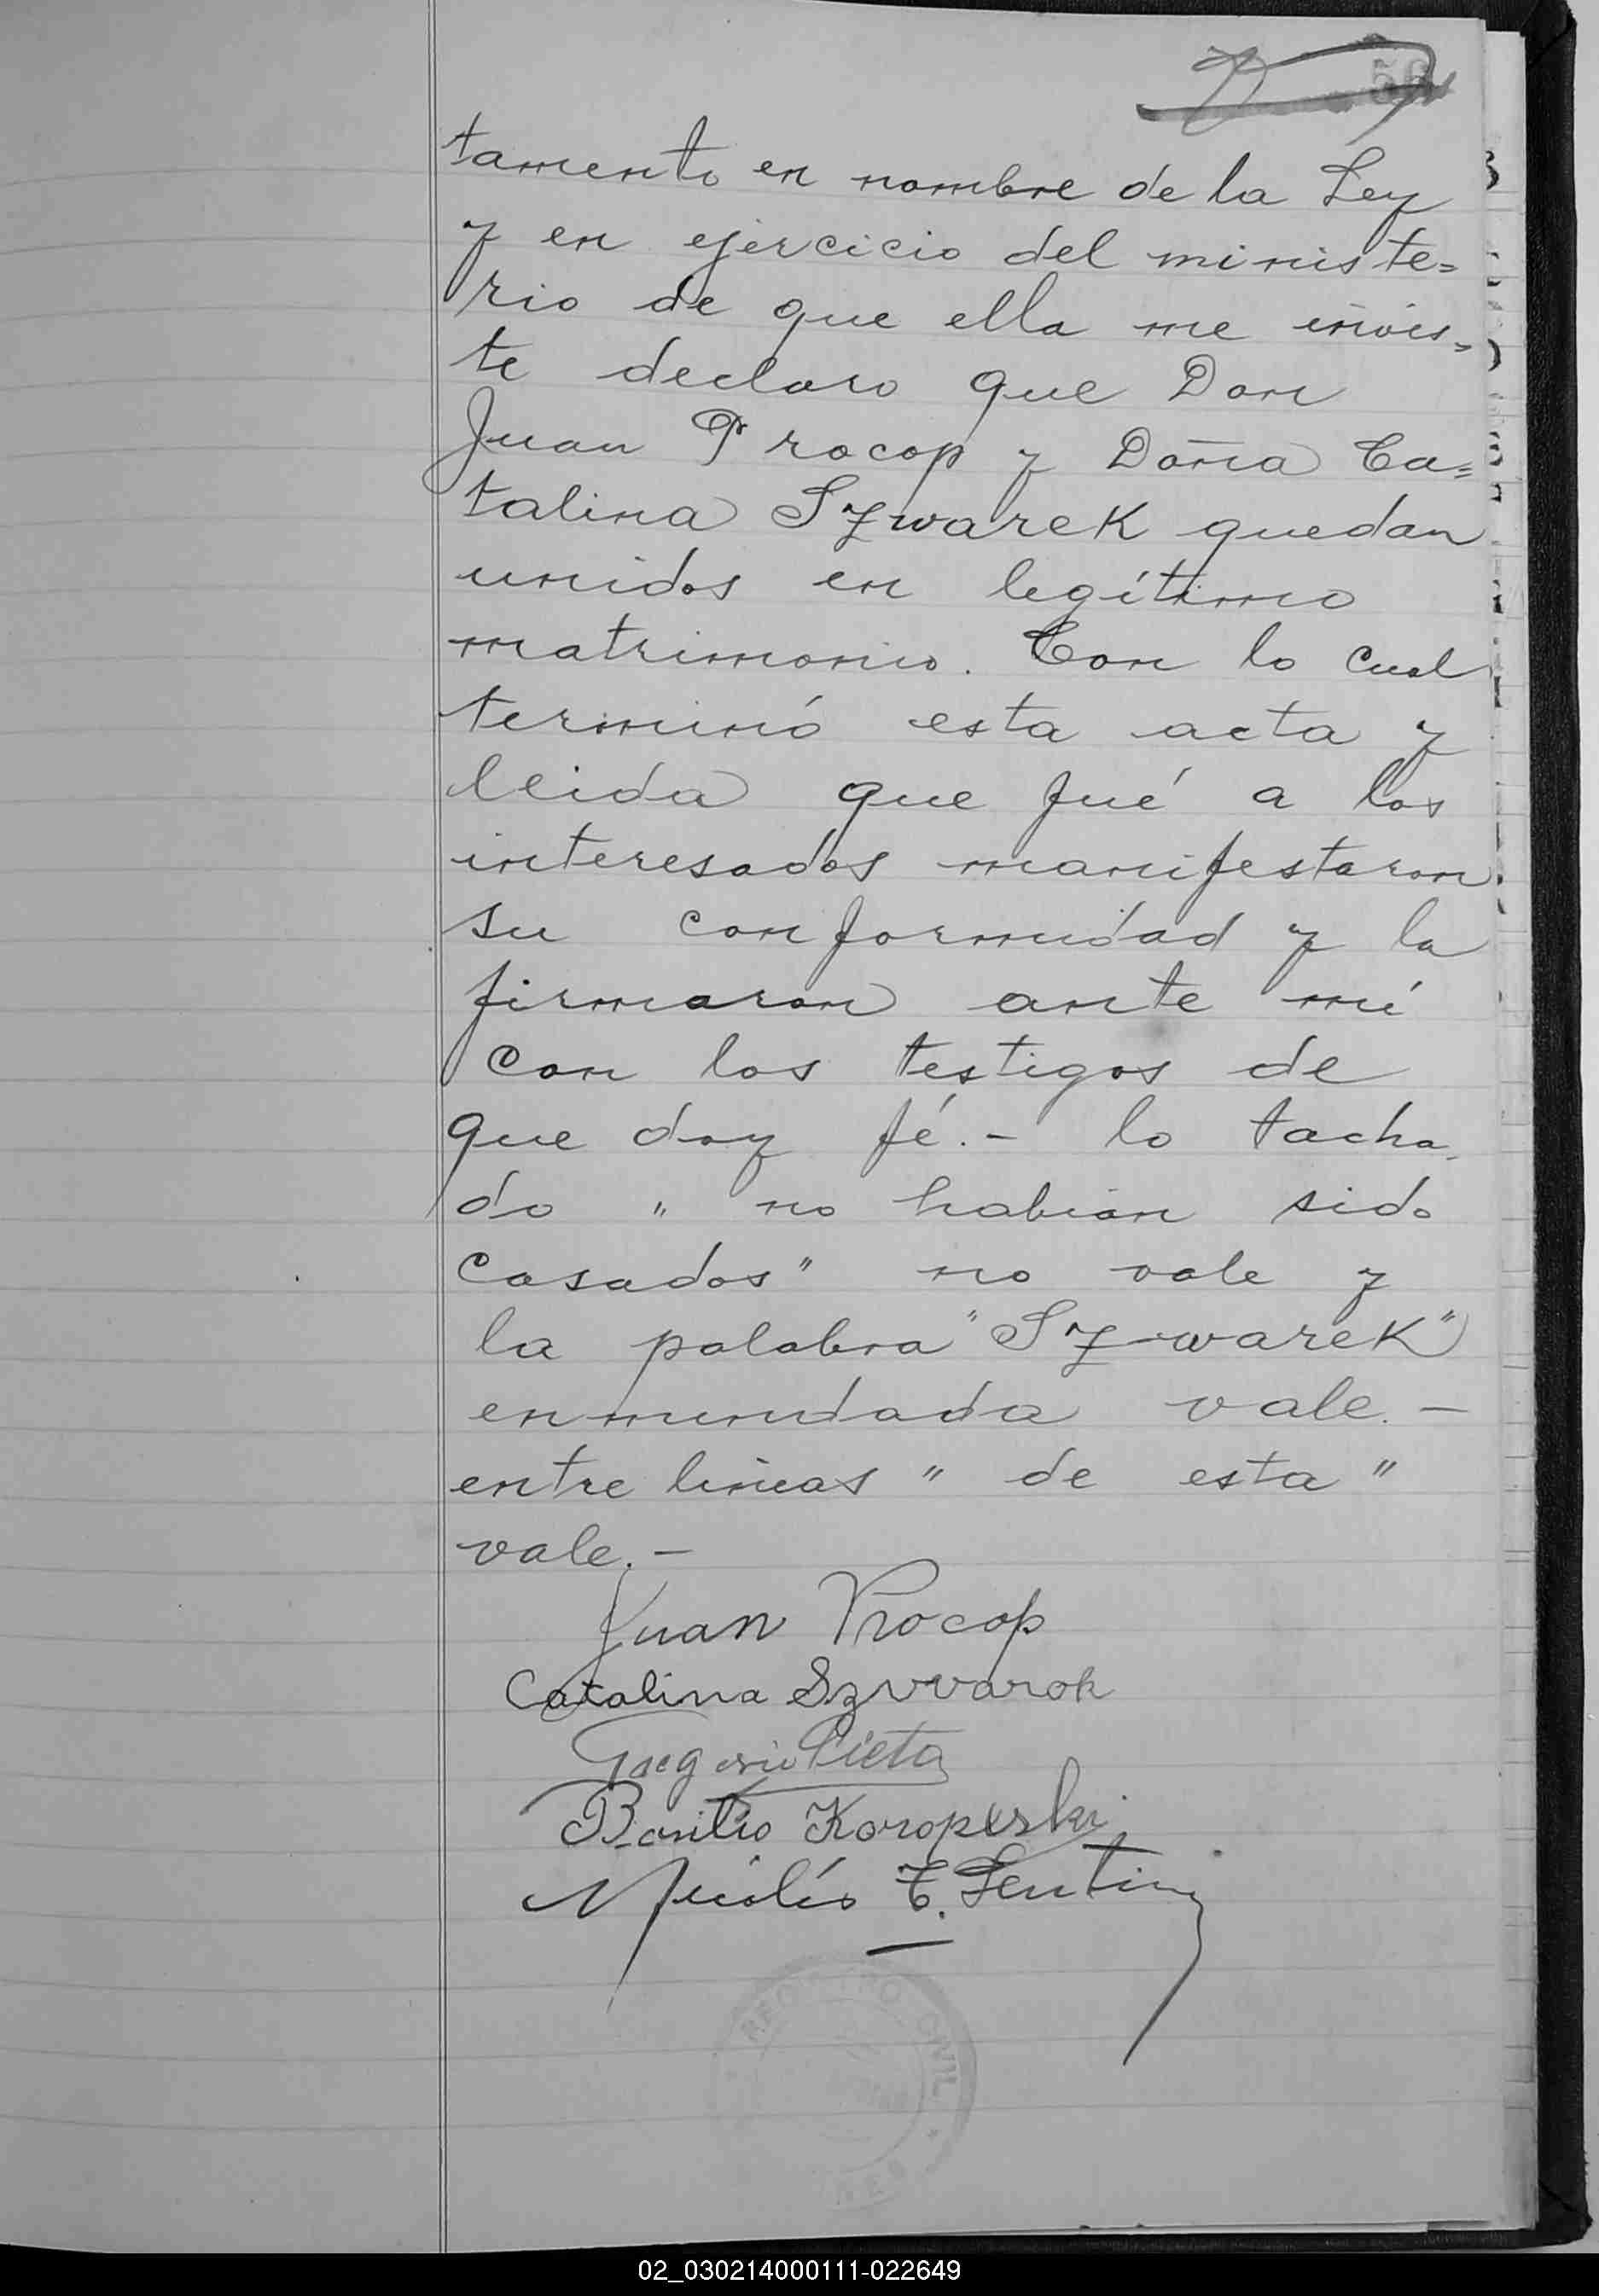 56
tamento en nombre de la Ley
y en ejercicio del ministe=
rio de que ella me invis=
te declaro que Don
Juan Procop y Doña Ca=
talina Szwarek quedan
unidos en legítimo
matrimonio. Con lo cual
terminó esta acta y
leida que fué a los
interesados manifestaron
su conformidad y la
firmaron ante mí
con los testigos de
que doy fé.- lo tacha
do " no habian sido
casados" no vale y
la palabra "Szwarek"
enmendada vale.-
entre lineas " de esta "
vale.-
Juan Procop
Catalina Szvvarok
Gregorio Pieta
Basilio Koropeski
REGISTRO CIVIL
02_030214000111-022649